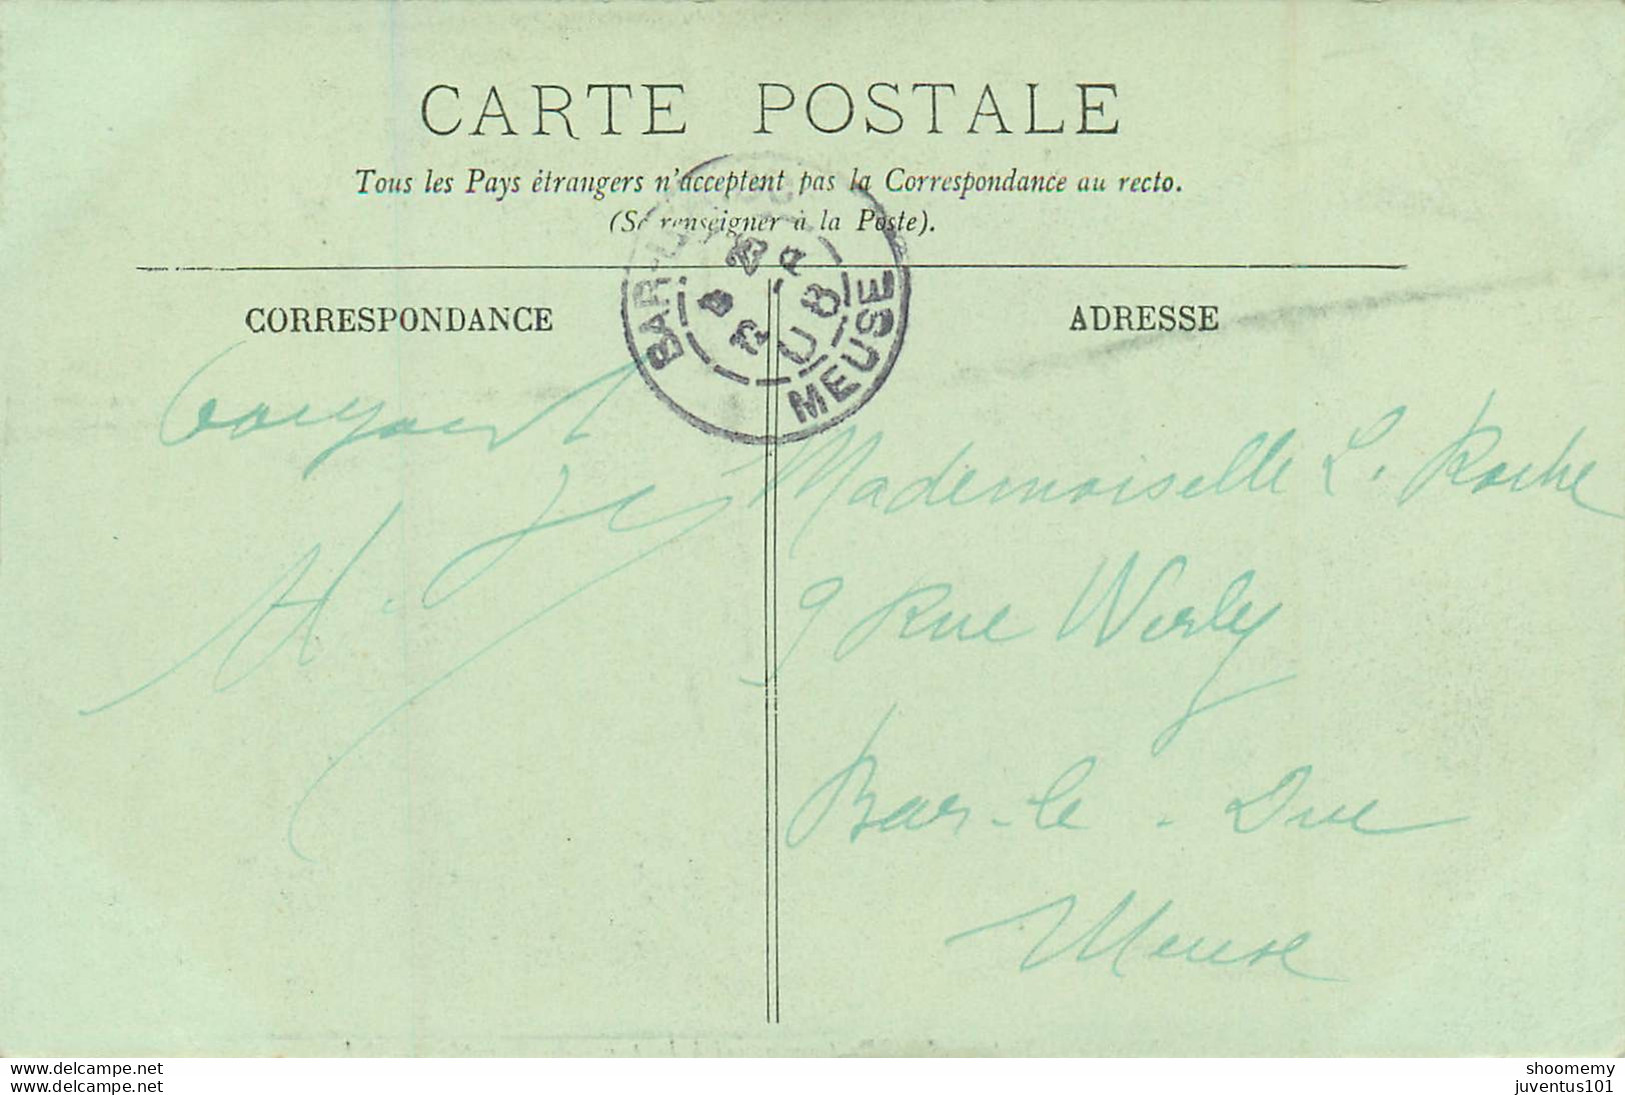 CARTE POSTALE
Tous les Pays étrangers n'acceptent pas la Correspondance au recto.
(Se renseigner à la Poste).
BAR-
MEUSE
08
CORRESPONDANCE
ADRESSE
Mademoiselle L. Roche
9 Rue Werly
Bar-le-Duc
Meuse
www.delcampe.net
www.delcampe.net
shoomemy
juventus101